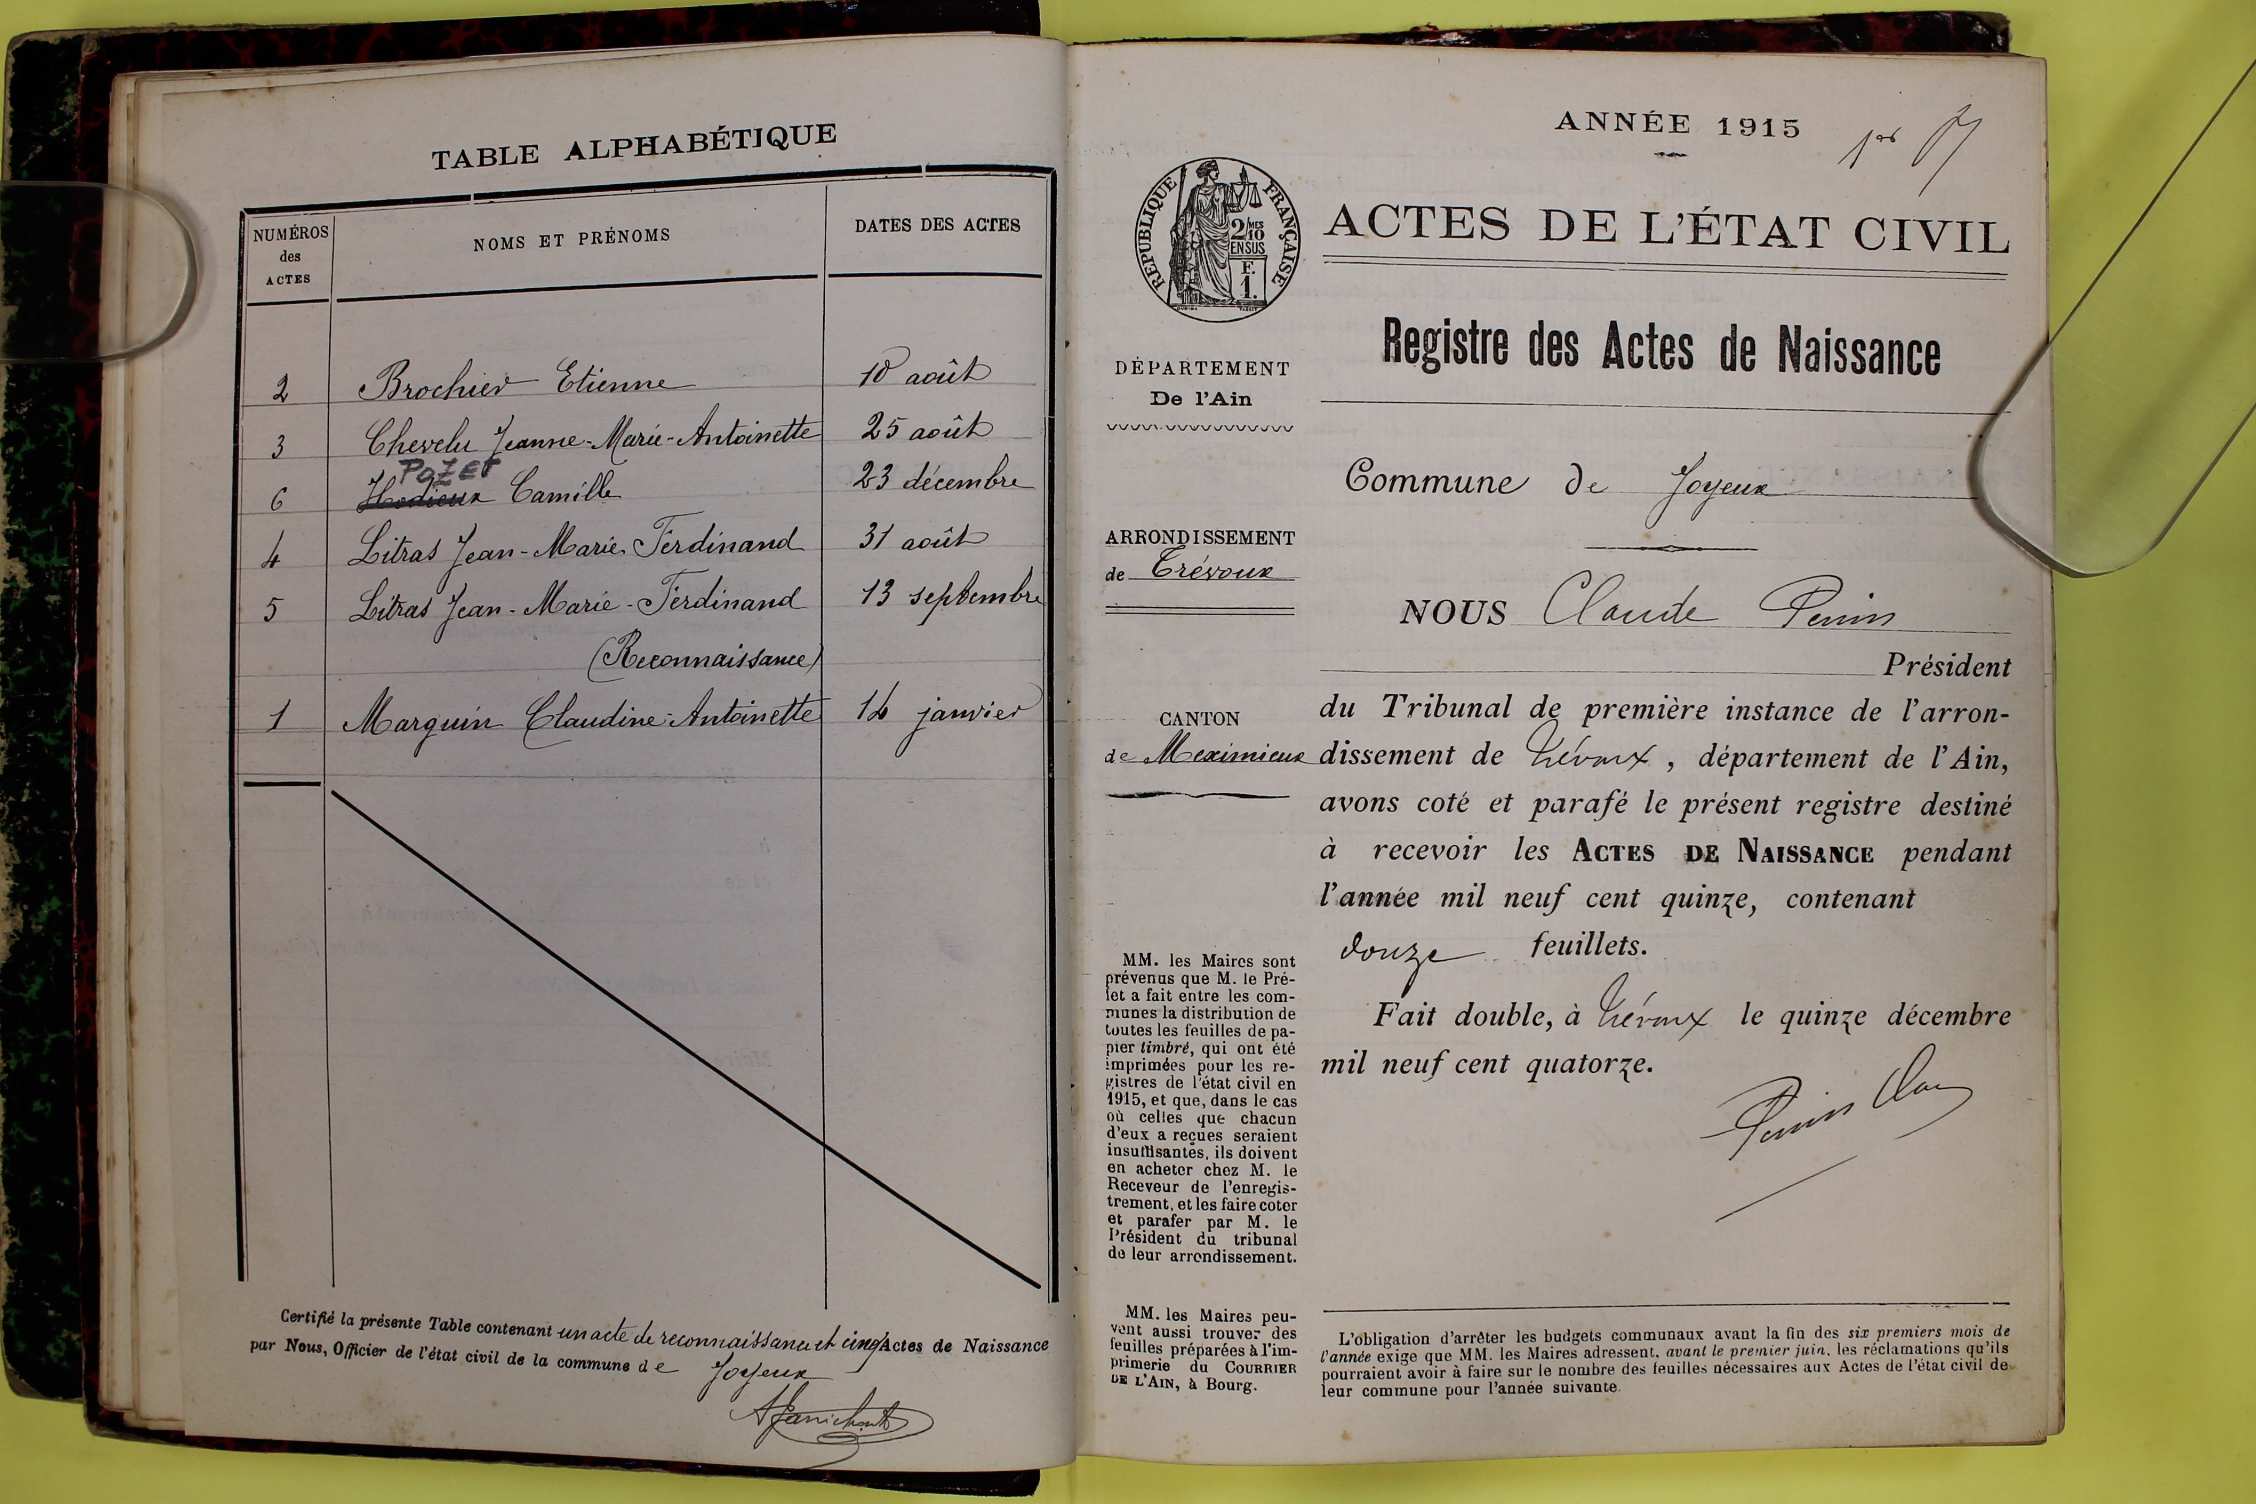 TABLE ALPHABÉTIQUE
NUMÉROS des ACTES NOMS ET PRÉNOMS DATES DES ACTES
2 Brochier Etienne 10 août
3 Chevelu Jeanne-Marie-Antoinette 25 août
POZET
6 Hodieux Camille 23 décembre
4 Litras Jean-Marie-Ferdinand 31 août
5 Litras Jean-Marie-Ferdinand 13 septembre
(Reconnaissance)
1 Marguin Claudine-Antoinette 14 janvier
Certifié la présente Table contenant un acte de reconnaissance et cinq Actes de Naissance
par Nous, Officier de l'état civil de la commune de Joyeux
ANNÉE 1915
RÉPUBLIQUE FRANÇAISE
2/10 MES
EN SUS
F.
1.
ACTES DE L'ÉTAT CIVIL
Registre des Actes de Naissance
DÉPARTEMENT
De l'Ain
Commune de Joyeux
ARRONDISSEMENT
de Trévoux
NOUS Claude Perrin
Président
CANTON
de Meximieux
du Tribunal de première instance de l'arron-
dissement de Trévoux, département de l'Ain,
avons coté et parafé le présent registre destiné
à recevoir les ACTES DE NAISSANCE pendant
l'année mil neuf cent quinze, contenant
douze feuillets.
Fait double, à Trévoux le quinze décembre
mil neuf cent quatorze.
MM. les Maires sont
prévenus que M. le Pré-
fet a fait entre les com-
munes la distribution de
toutes les feuilles de pa-
pier timbré, qui ont été
imprimées pour les re-
gistres de l'état civil en
1915, et que, dans le cas
où celles que chacun
d'eux a reçues seraient
insuffisantes, ils doivent
en acheter chez M. le
Receveur de l'enregis-
trement, et les faire coter
et parafer par M. le
Président du tribunal
de leur arrondissement.
MM. les Maires peu-
vent aussi trouver des
feuilles préparées à l'im-
primerie du COURRIER
DE L'AIN, à Bourg.
L'obligation d'arrêter les budgets communaux avant la fin des six premiers mois de
l'année exige que MM. les Maires adressent, avant le premier juin, les réclamations qu'ils
pourraient avoir à faire sur le nombre des feuilles nécessaires aux Actes de l'état civil de
leur commune pour l'année suivante.